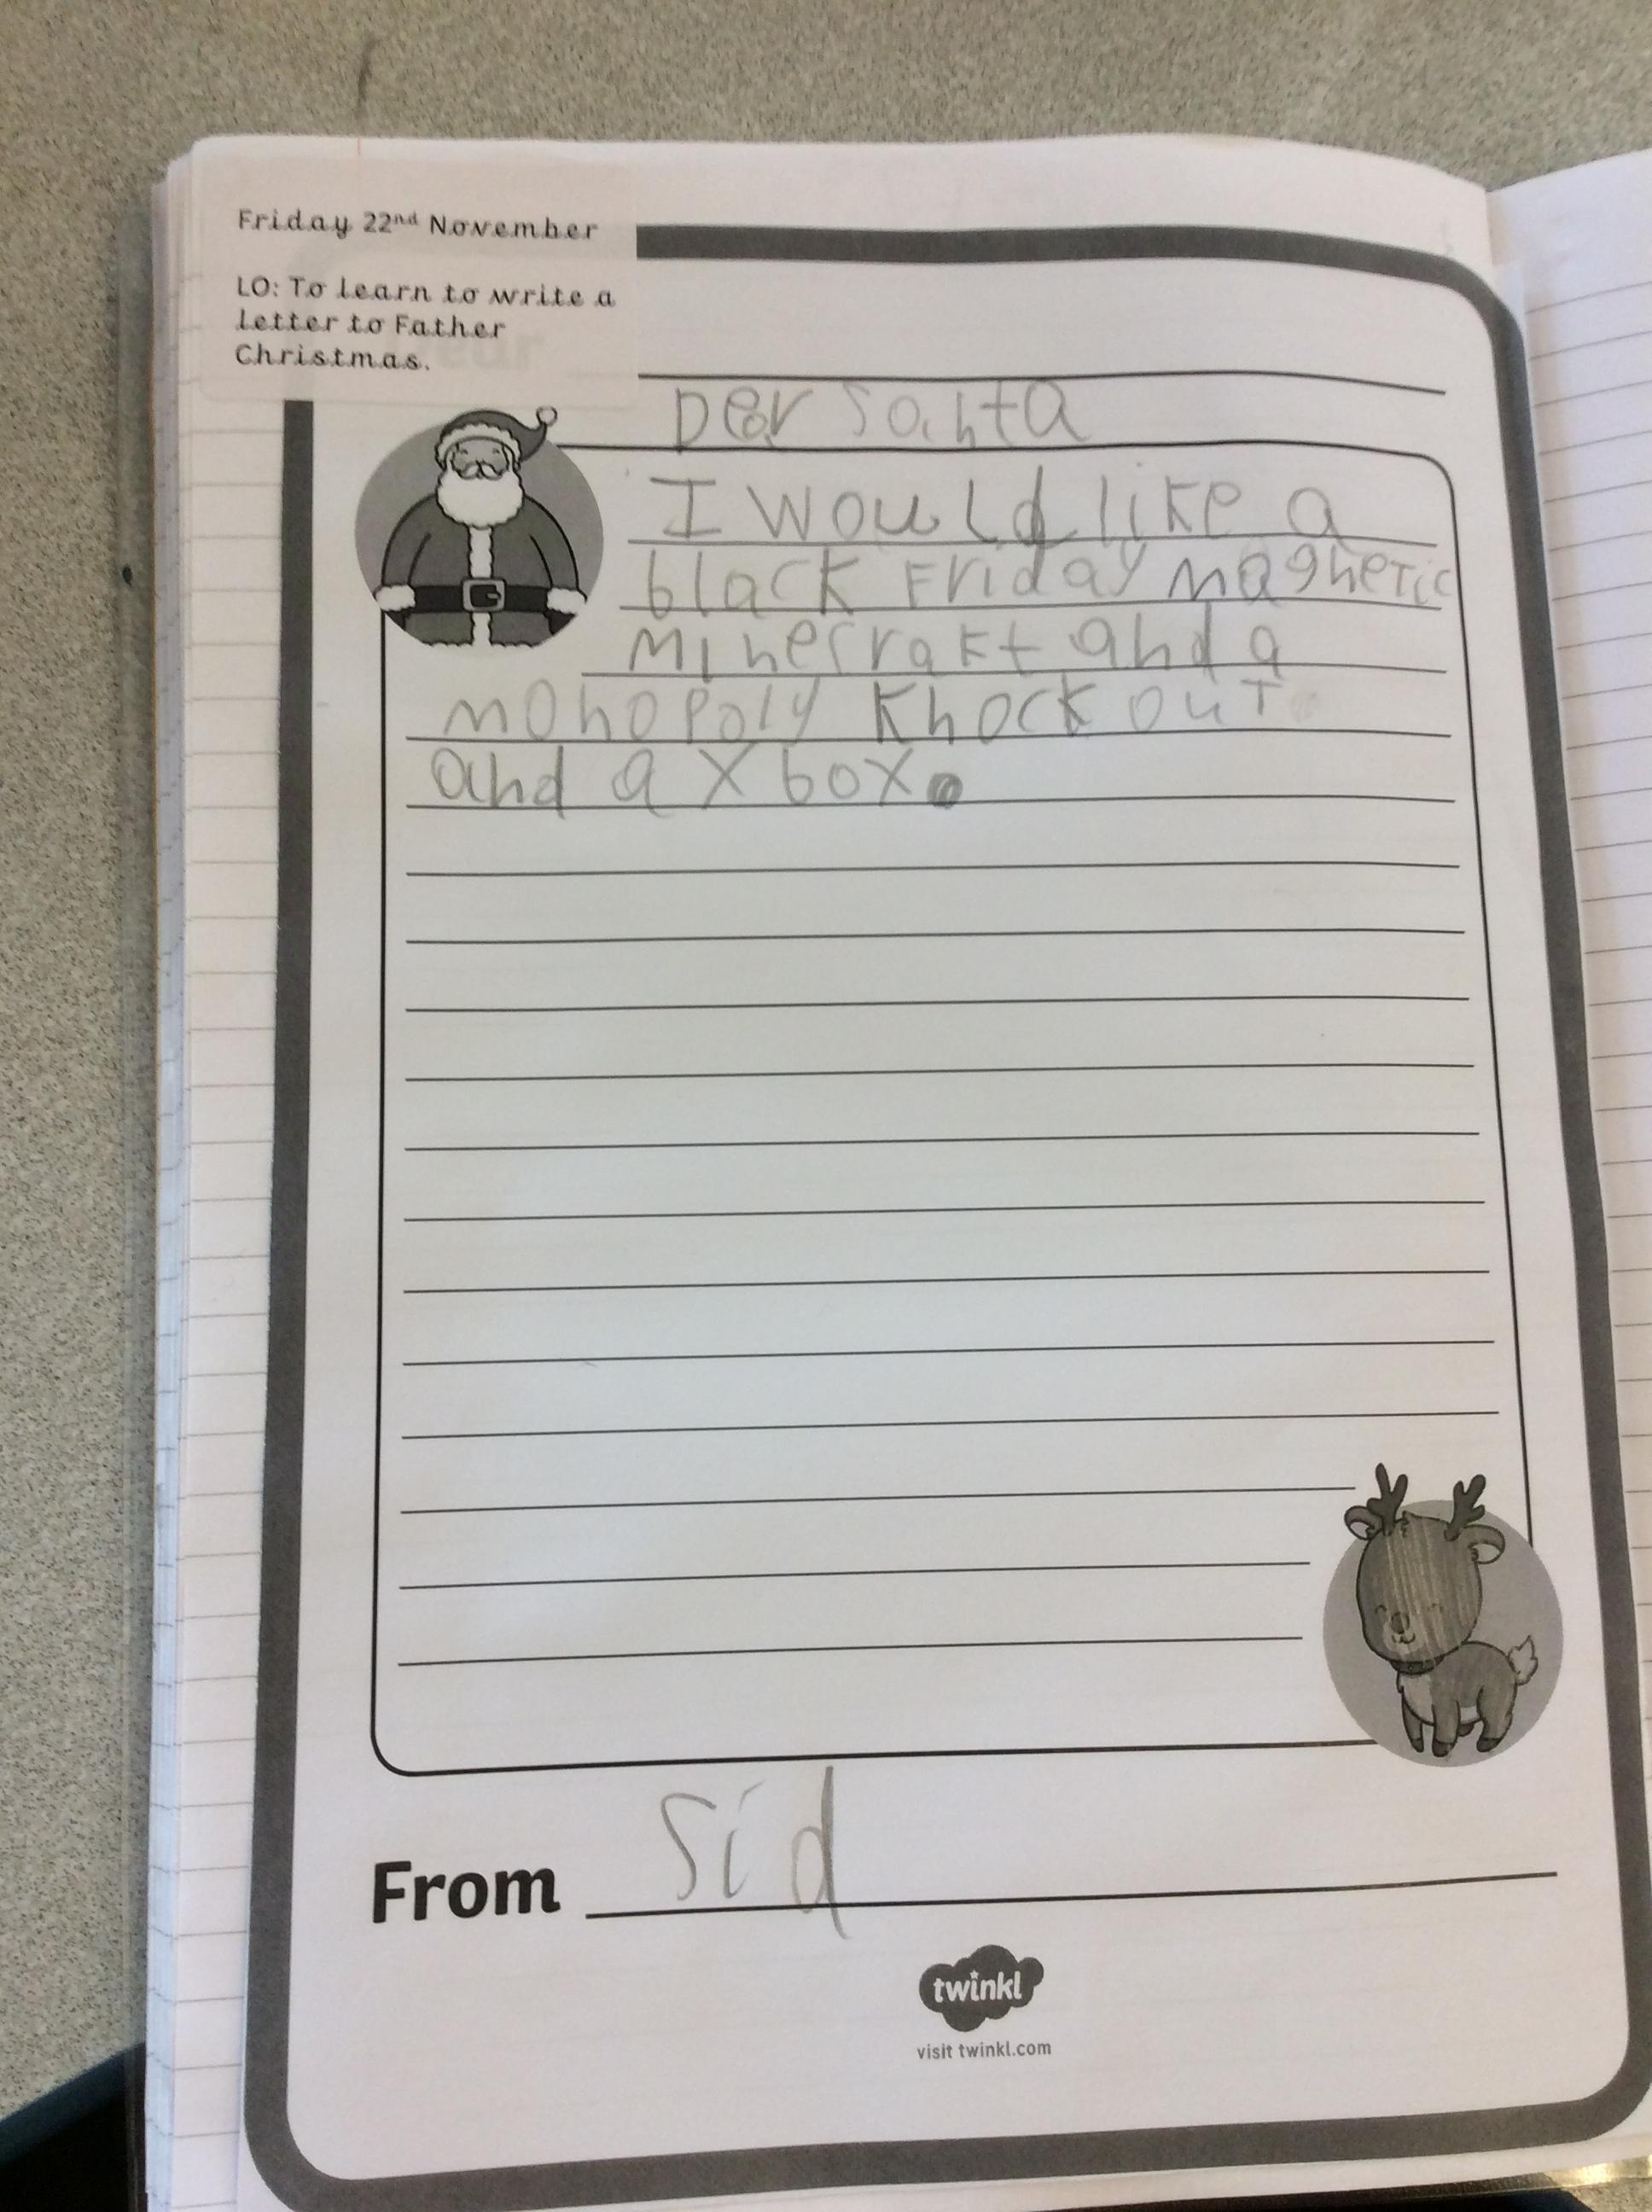 Friday 22nd November
LO: To learn to write a
letter to Father
Christmas.
Dear Santa
I would like a
black Friday magnetic
Minecraft and a
monopoly knock out
and a x box.
From Sid
twinkl
visit twinkl.com